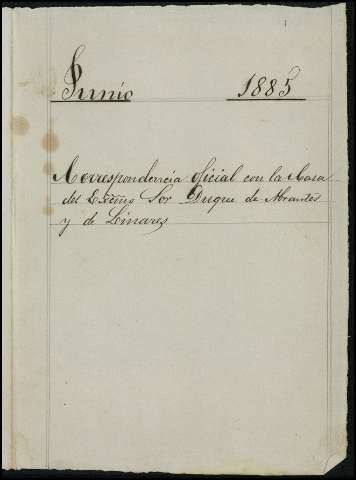 Junio 1885
Correspondencia oficial con la Casa
del Excmo Sor Duque de Abrantes
y de Linares